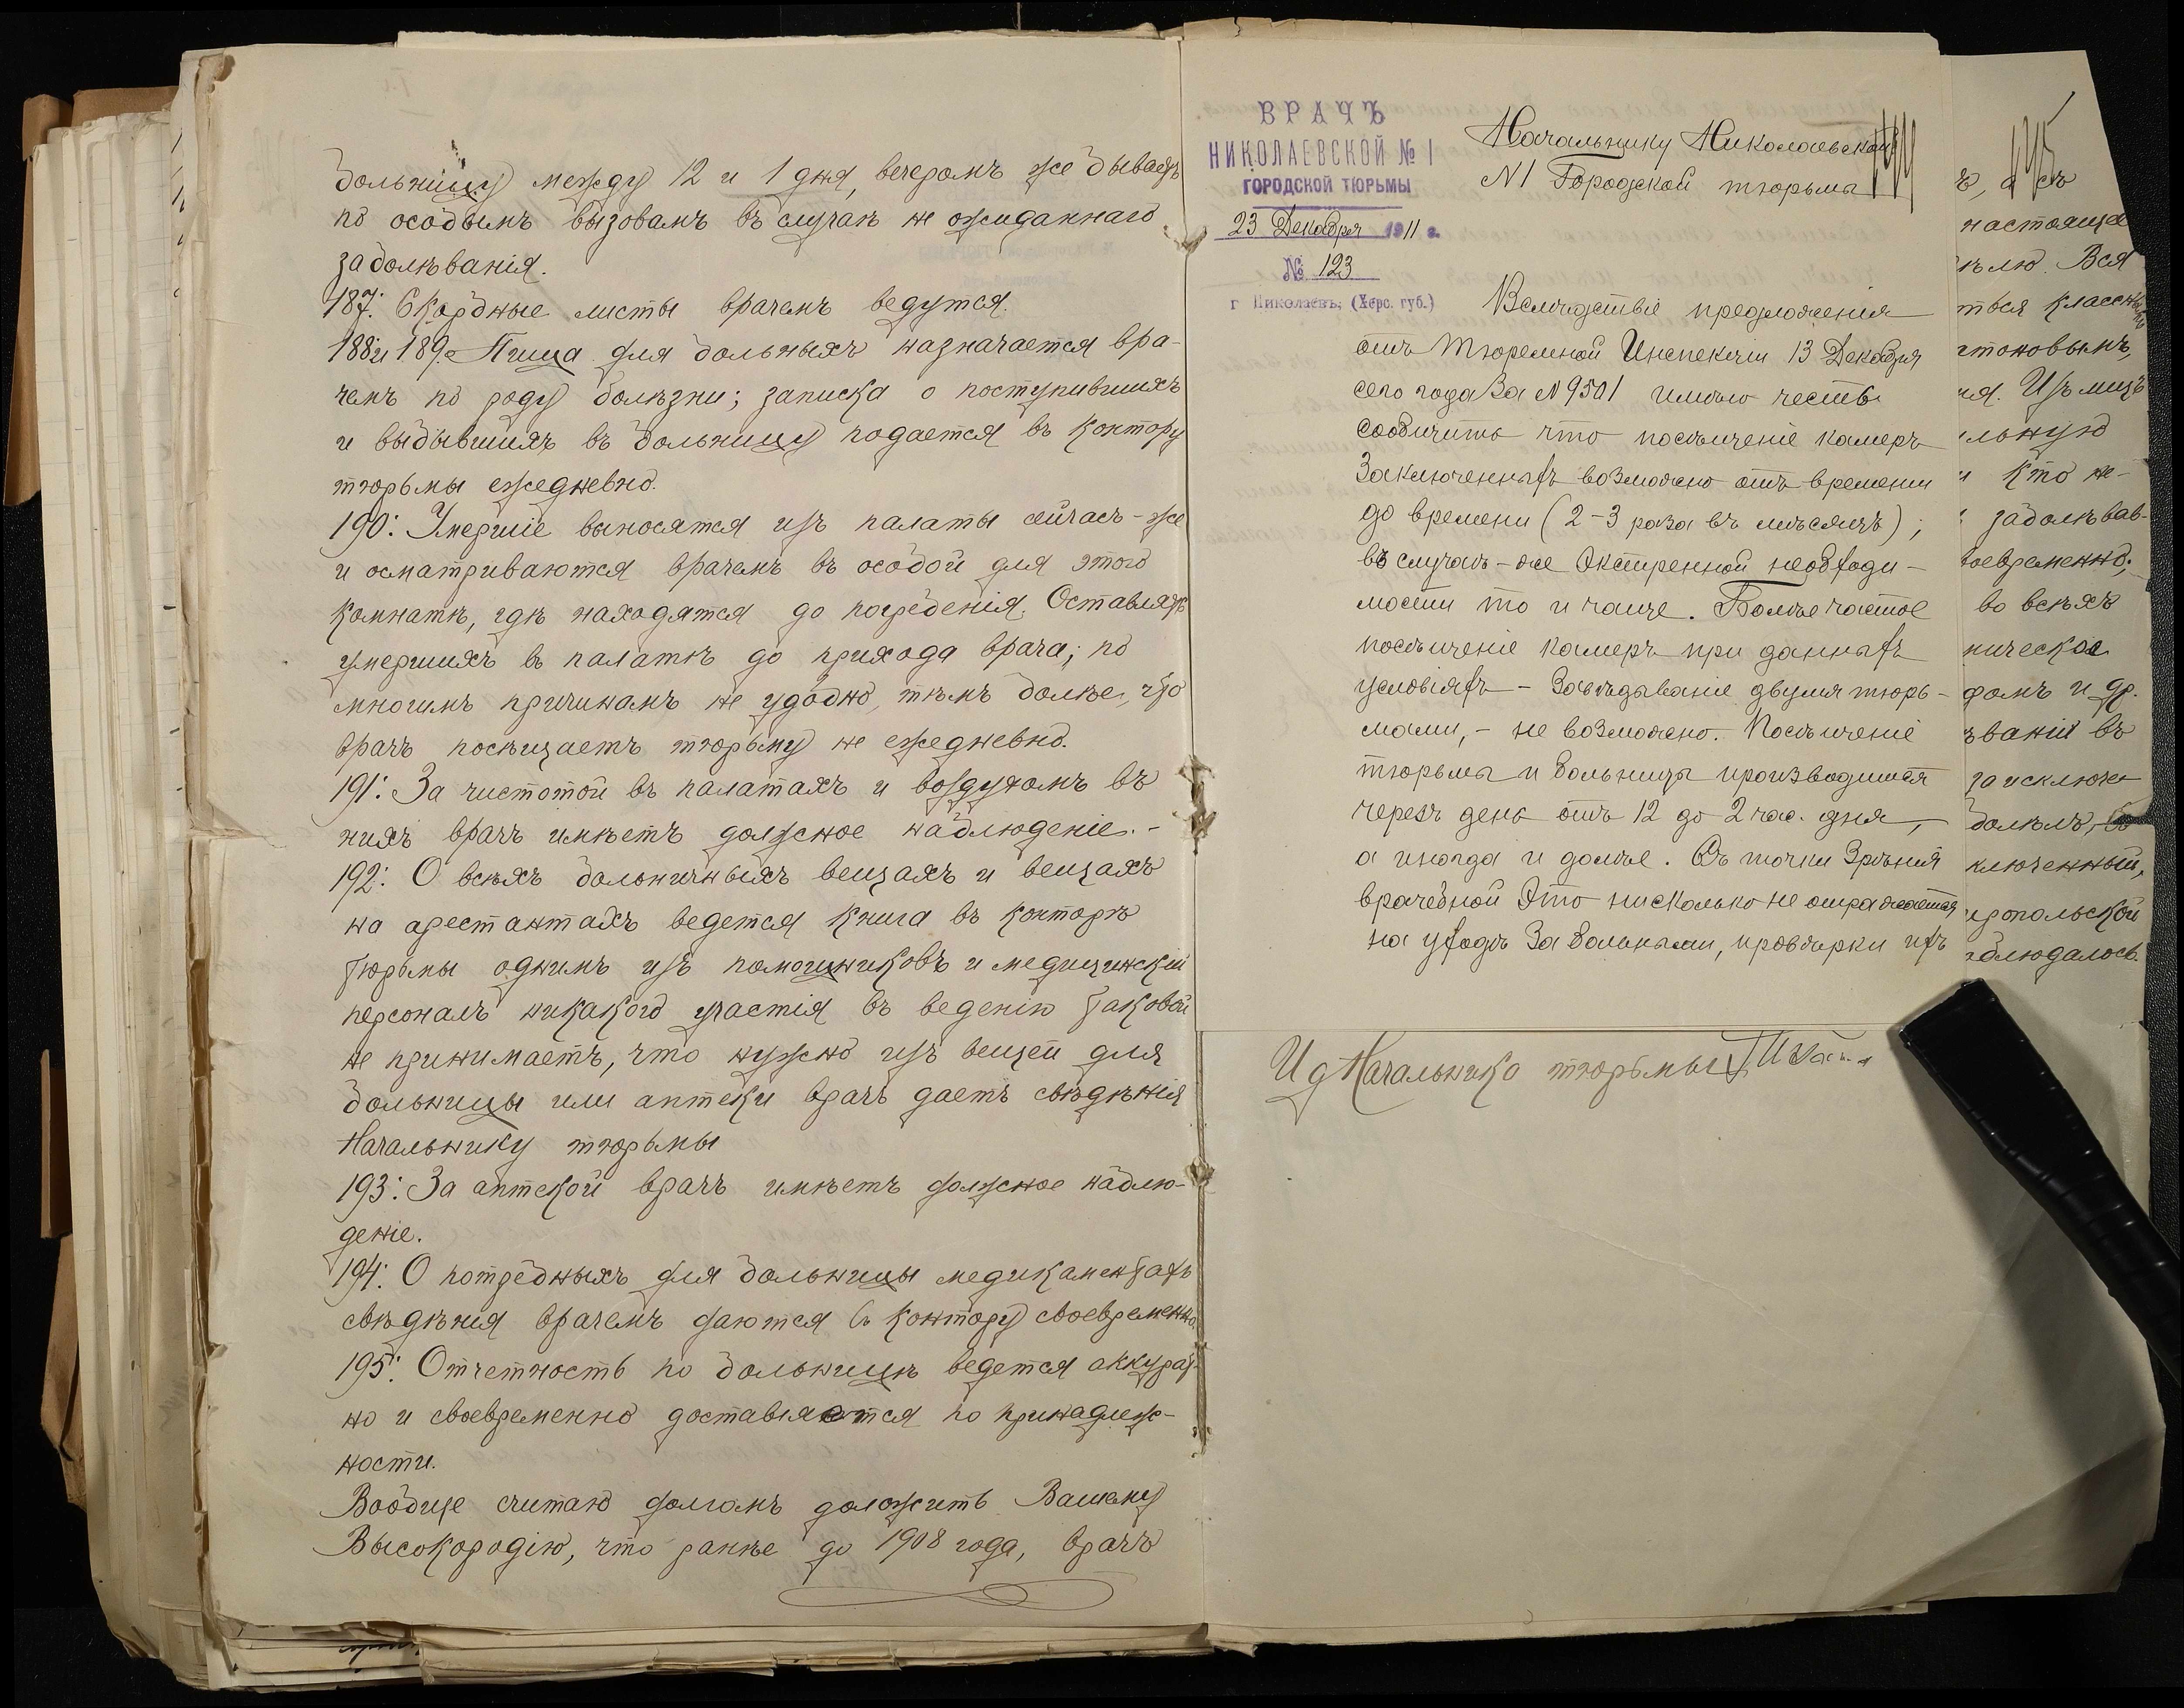 больницу между 12 и 1 дня, вечеромъ же бываетъ
по особымъ вызовамъ въ случаѣ не ожиданнаго
заболѣванія.
187: Скорбные листы врачемъ ведутся.
188 и 189. Пища для больныхъ назначается вра-
чемъ по роду болѣзни; записка о поступившихъ
и выбывшихъ въ больницу подается въ контору
тюрьмы ежедневно.
190: Умершіе выносятся изъ палаты сейчасъ-же
и осматриваются врачемъ въ особой для этого
комнатѣ, гдѣ находятся до погребенія. Оставлять
умершихъ в палатѣ до прихода врача, по
многимъ причинамъ не удобно, тѣмъ болѣе, что
врачъ посѣщаетъ тюрьму не ежедневно.
191: За чистотой въ палатахъ и воздухомъ въ
нихъ врачъ имѣетъ должное наблюденіе.-
192: О всѣхъ больничныхъ вещахъ и вещахъ
на арестантахъ ведется книга въ конторѣ
тюрьмы однимъ изъ помощниковъ и медицинскій
персоналъ никакого участія въ веденію таковой
не принимаетъ, что нужно изъ вещей для
больницы или аптеки врачъ даетъ свѣдѣнія
Начальнику тюрьмы
193: За аптекой врачъ имѣетъ должное наблю-
деніе.
194: О потребныхъ для больницы медикаментахъ
свѣдѣнія врачемъ даются въ контору своевременно.
195: Отчетность по больницѣ ведется аккурат-
но и своевременно доставляется по принадлеж-
ности.
Вообще считаю долгомъ доложить Вашему
Высокородію, что ранѣе до 1908 года, врачъ
ВРАЧЪ
НИКОЛАЕВСКОЙ № 1
ГОРОДСКОЙ ТЮРЬМЫ
23 Декабря 1911 г.
№ 123
г. Николаевъ, (Херс. губ.)
Начальнику Николаевской
N1 Городской тюрьмы
Вслѣдствіе предложенія
отъ Тюремной Инспекціи 13 Декабря
сего года за N 9501 имѣю честь
сообщить что посѣщеніе камеръ
Заключенныхъ возможно отъ времени
до времени (2-3 раза въ мѣсяцъ);
въ случаѣ-же Экстренной необходи-
мости то и чаще. Болѣе частое
посѣщеніе камеръ при данныхъ
условіяхъ - Завѣдываніе двумя тюрь-
мами, - не возможно. Посѣщеніе
тюрьмы и больницы производится
черезъ день отъ 12 до 2 час. дня,
а иногда и долѣе. Съ точки Зрѣнія
врачебной Это нисколько не отражается
на уходѣ За больными, провѣрки ихъ
И д Начальника тюрьмы
ъ, а съ
настояще
ѣлю. Вся
ться классн
стоновымъ,
ія. Изъ лицъ
льную
и кто не-
заболѣвав-
воевременно;
во всѣхъ
ническое
фомъ и др.
ѣваній въ
за исключе
болѣлъ,
ключенный,
иропольской
облюдалось.